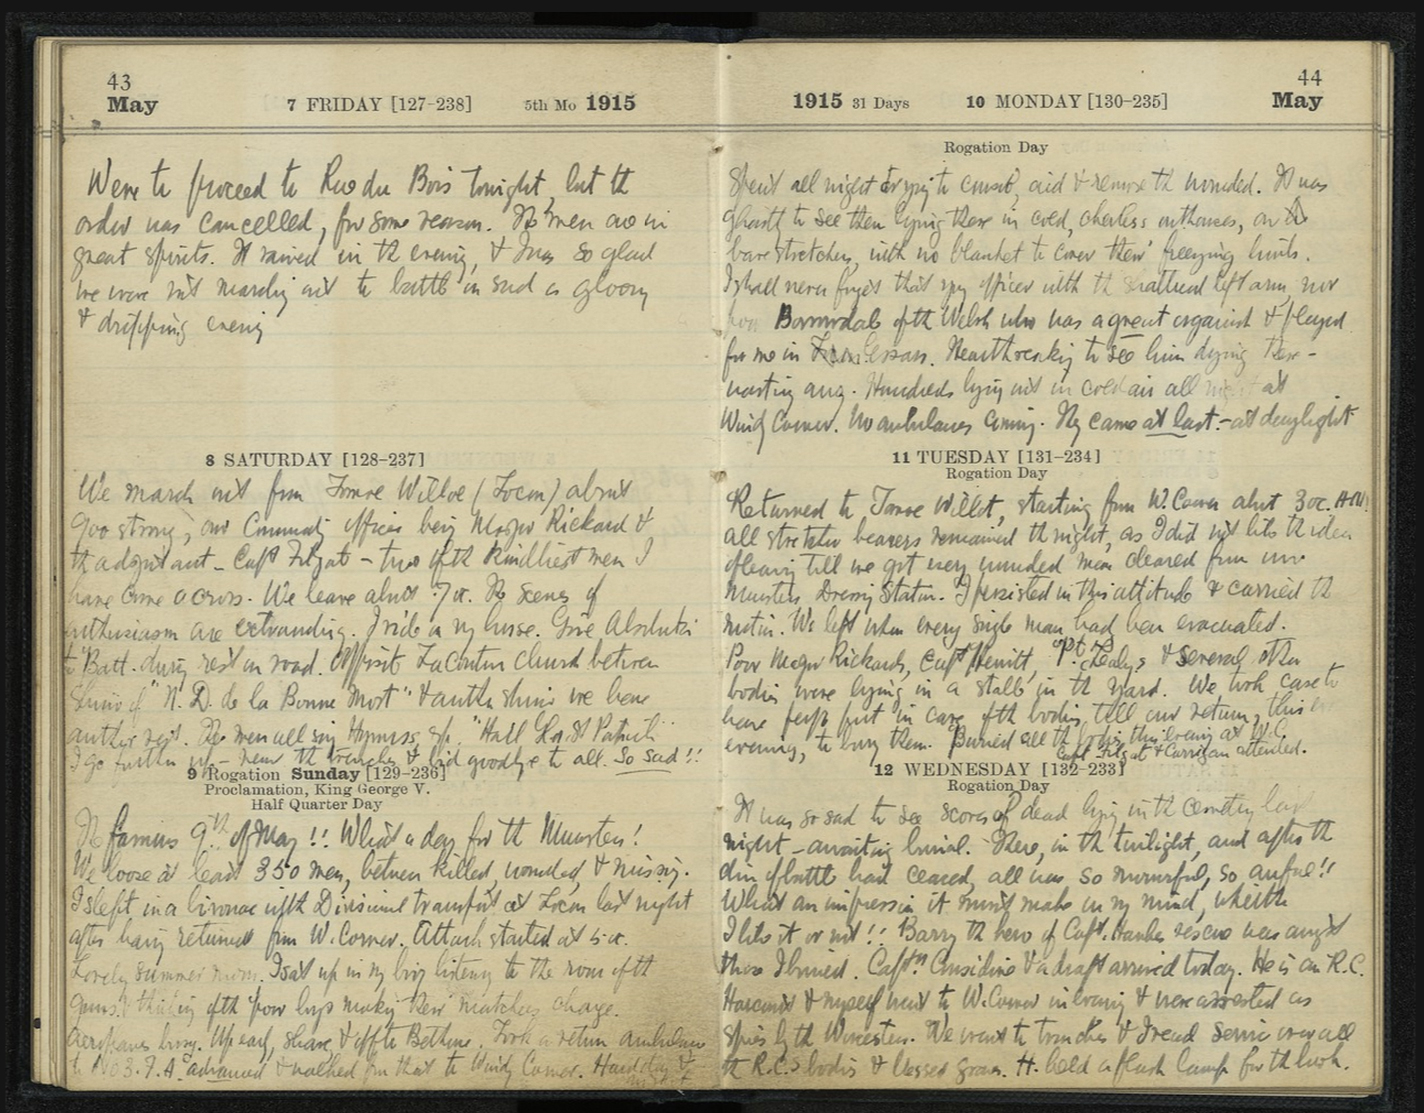 43
May
7 FRIDAY [127-238]
5th Mo 1915
Were to proceed to Rue du Bois tonight, but th
order was cancelled, for some reason. The men are in
great spirits. It rained in th evening, & I was so glad
we were not marching out to battle in such a gloomy
& dripping evening
8 SATURDAY [128-237]
We march out from Tombe Willot (Locon) about
900 strong, our Commandg officer being Major Rickard &
th adjutant - Capt Filgat - two of th kindliest men I
have come across. We leave about 7 oc. The scenes of
enthusiasm are extraordinary. I ride on my horse. Give Absolution
to Batt. during rest on road. Opposite La Couture church between
Shrine of "N. D. de la Bonne Mort" & another shrine we have
another rest. The men all sing Hymns, sp. "Hail Gl. St Patrick"
I go further up - near th trenches & bid goodbye to all. So sad!!
9 Rogation Sunday [129-236]
Proclamation, King George V.
Half Quarter Day
The famous 9th of May!! What a day for th Munsters!
We loose at least 350 men, between killed, wounded, & missing.
I slept in a bivouac with Divisional transport at Locon last night
after having returned from W. Corner. Attack started at 5 oc.
Lovely summer morn. I sat up in my bivy listening to the roar of th
guns & thinking of th poor boys making their matchless charge.
Aeroplanes busy. Up early, shave, & off to Bethune. Took a return ambulance
to No 3. F.A. advanced & walked from that to Windy Corner. Hard day &
night
44
May
1915 31 Days
10 MONDAY [130-235]
Rogation Day
Spent all night trying to console, aid & remove th wounded. It was
ghastly to see them lying there in cold, cheerless outhouses, on
bare stretchers, with no blanket to cover their freezing limbs.
I shall never forget that officer with th shattered left arm, nor
Borrowdale of th Welsh who was a great organist & played
for me in Essars. Heartbreaking to see him dying there -
wasting away. Hundreds lying out in cold air all night at
Windy Corner. No ambulances coming. They came at last. - at daylight
11 TUESDAY [131-234]
Rogation Day
Returned to Tombe Willot, starting from W. Corner about 3 oc. A.M.
all stretcher bearers remained th night, as I did not like th idea
of leaving till we got every wounded man cleared from our
Munsters Dressing Station. I persisted in this attitude & carried th
motion. We left when every single man had been evacuated.
Poor Major Rickard, Capt Hewitt, Pt. Healy, & several other
bodies were lying in a stable in th yard. We took care to
have put in care of th bodies till our return, this
evening, to bury them. Buried all th bodies this evening at W.C.
Capt Filgat & Carrigan attended.
12 WEDNESDAY [132-233]
Rogation Day
It was so sad to see scores of dead lying in th cemetery last
night - awaiting burial. There, in th twilight, and after th
din of battle had ceased, all was so mournful, so awful!!
What an impression it must make in my mind, whether
I like it or not!! Barry th hero of Capt. Hawkes rescue was amongst
those I buried. Captn Considine & a draft arrived today. He is an R.C.
Harcourt & myself went to W. Corner in evening & were arrested as
Spies by th Worcesters. We went to trenches & I read service over all
th R.C.s bodies & blessed graves. H. held a flash lamp for th book.